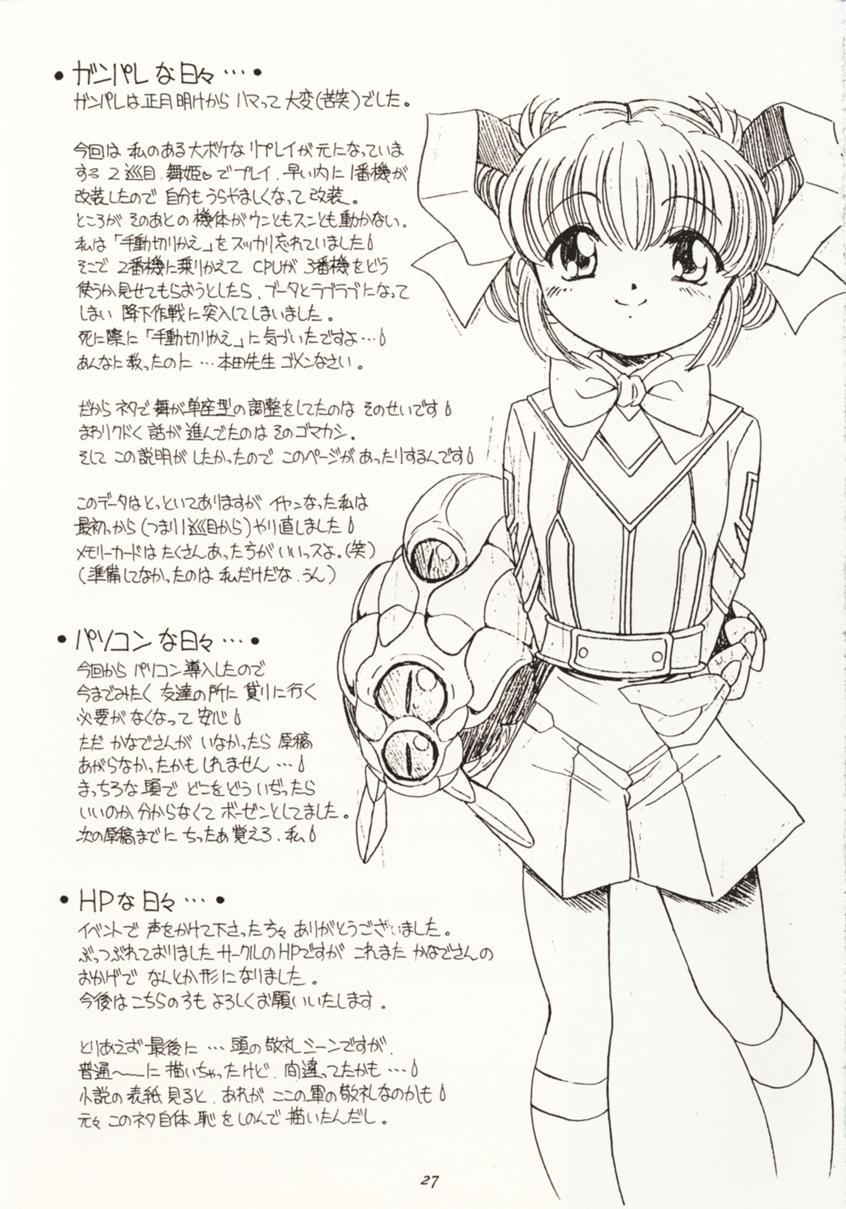 • ガンパレな日々…•
ガンパレは正月明けからハマって大変(苦笑)でした。
今回は私のある大ボケなリプレイが元になっていま
する2巡目、舞姫♡でプレイ、早い内に1番機が
改装したので自分もうらやましくなって改装。
ところがそのあとの機体がウンともスンとも動かない。
私は「手動切りかえ」をスッカリ忘れていました
そこで2番機に乗りかえてCPUが3番機をどう
使うか見せてもらおうとしたら、ブータとラブラブになって
しまい降下作戦に突入してしまいました。
死に際に「手動切りかえ」に気づいたですよ…
あんなに教ったのに…本田先生ゴメンなさい。
だからネタで舞が単座型の調整をしてたのはそのせいです
まわりクドく話が進んでたのはそのゴマカシ。
そしてこの説明がしたかったのでこのページがあったりするんです
このデータはとっといてありますがイヤンなった私は
最初っから(つまり1巡目から)やり直しました
メモリーカードはたくさんあった方がいいっスよ。(笑)
(準備してなかったのは私だけだな、うん)
• パソコンな日々…•
今回からパソコン導入したので
今までみたく友達の所に貸りに行く
必要がなくなって安心
ただかなでさんがいなかったら原稿
あがらなかったかもしれません…
まっちろな頭でどこをどういぢったら
いいのか分からなくてボーゼンとしてました。
次の原稿までにちったあ覚えろ、私
• HPな日々…•
イベントで声をかけて下さった方々ありがとうございました。
ぶっつぶれておりましたサークルのHPですがこれまたかなでさんの
おかげでなんとか形になりました。
今後はこちらの方もよろしくお願いいたします。
とりあえず最後に…頭の敬礼シーンですが、
普通〜〜に描いちゃったけど、間違ってたかも…
小説の表紙見ると、あれがここの軍の敬礼なのかも
元々このネタ自体、恥をしのんで描いたんだし。
27